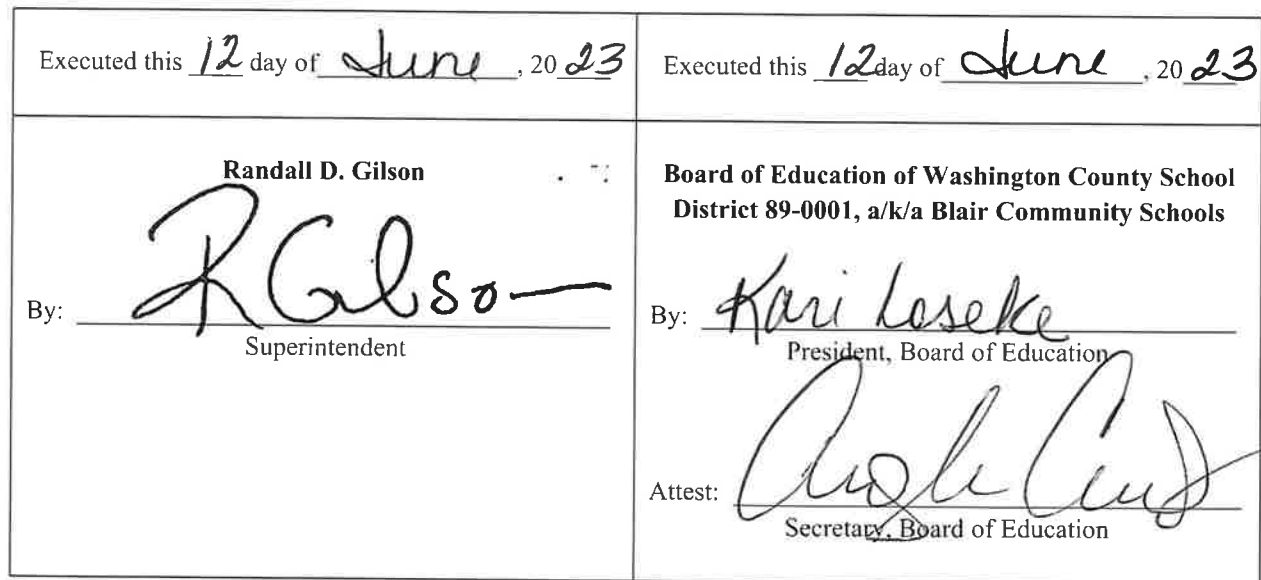 Executed this 12 day of June, 20 23
Executed this 12 day of June, 20 23
Randall D. Gilson
By: R Gilson
Superintendent
Board of Education of Washington County School
District 89-0001, a/k/a Blair Community Schools
By: Kari Loseke
President, Board of Education
Attest:
Secretary, Board of Education